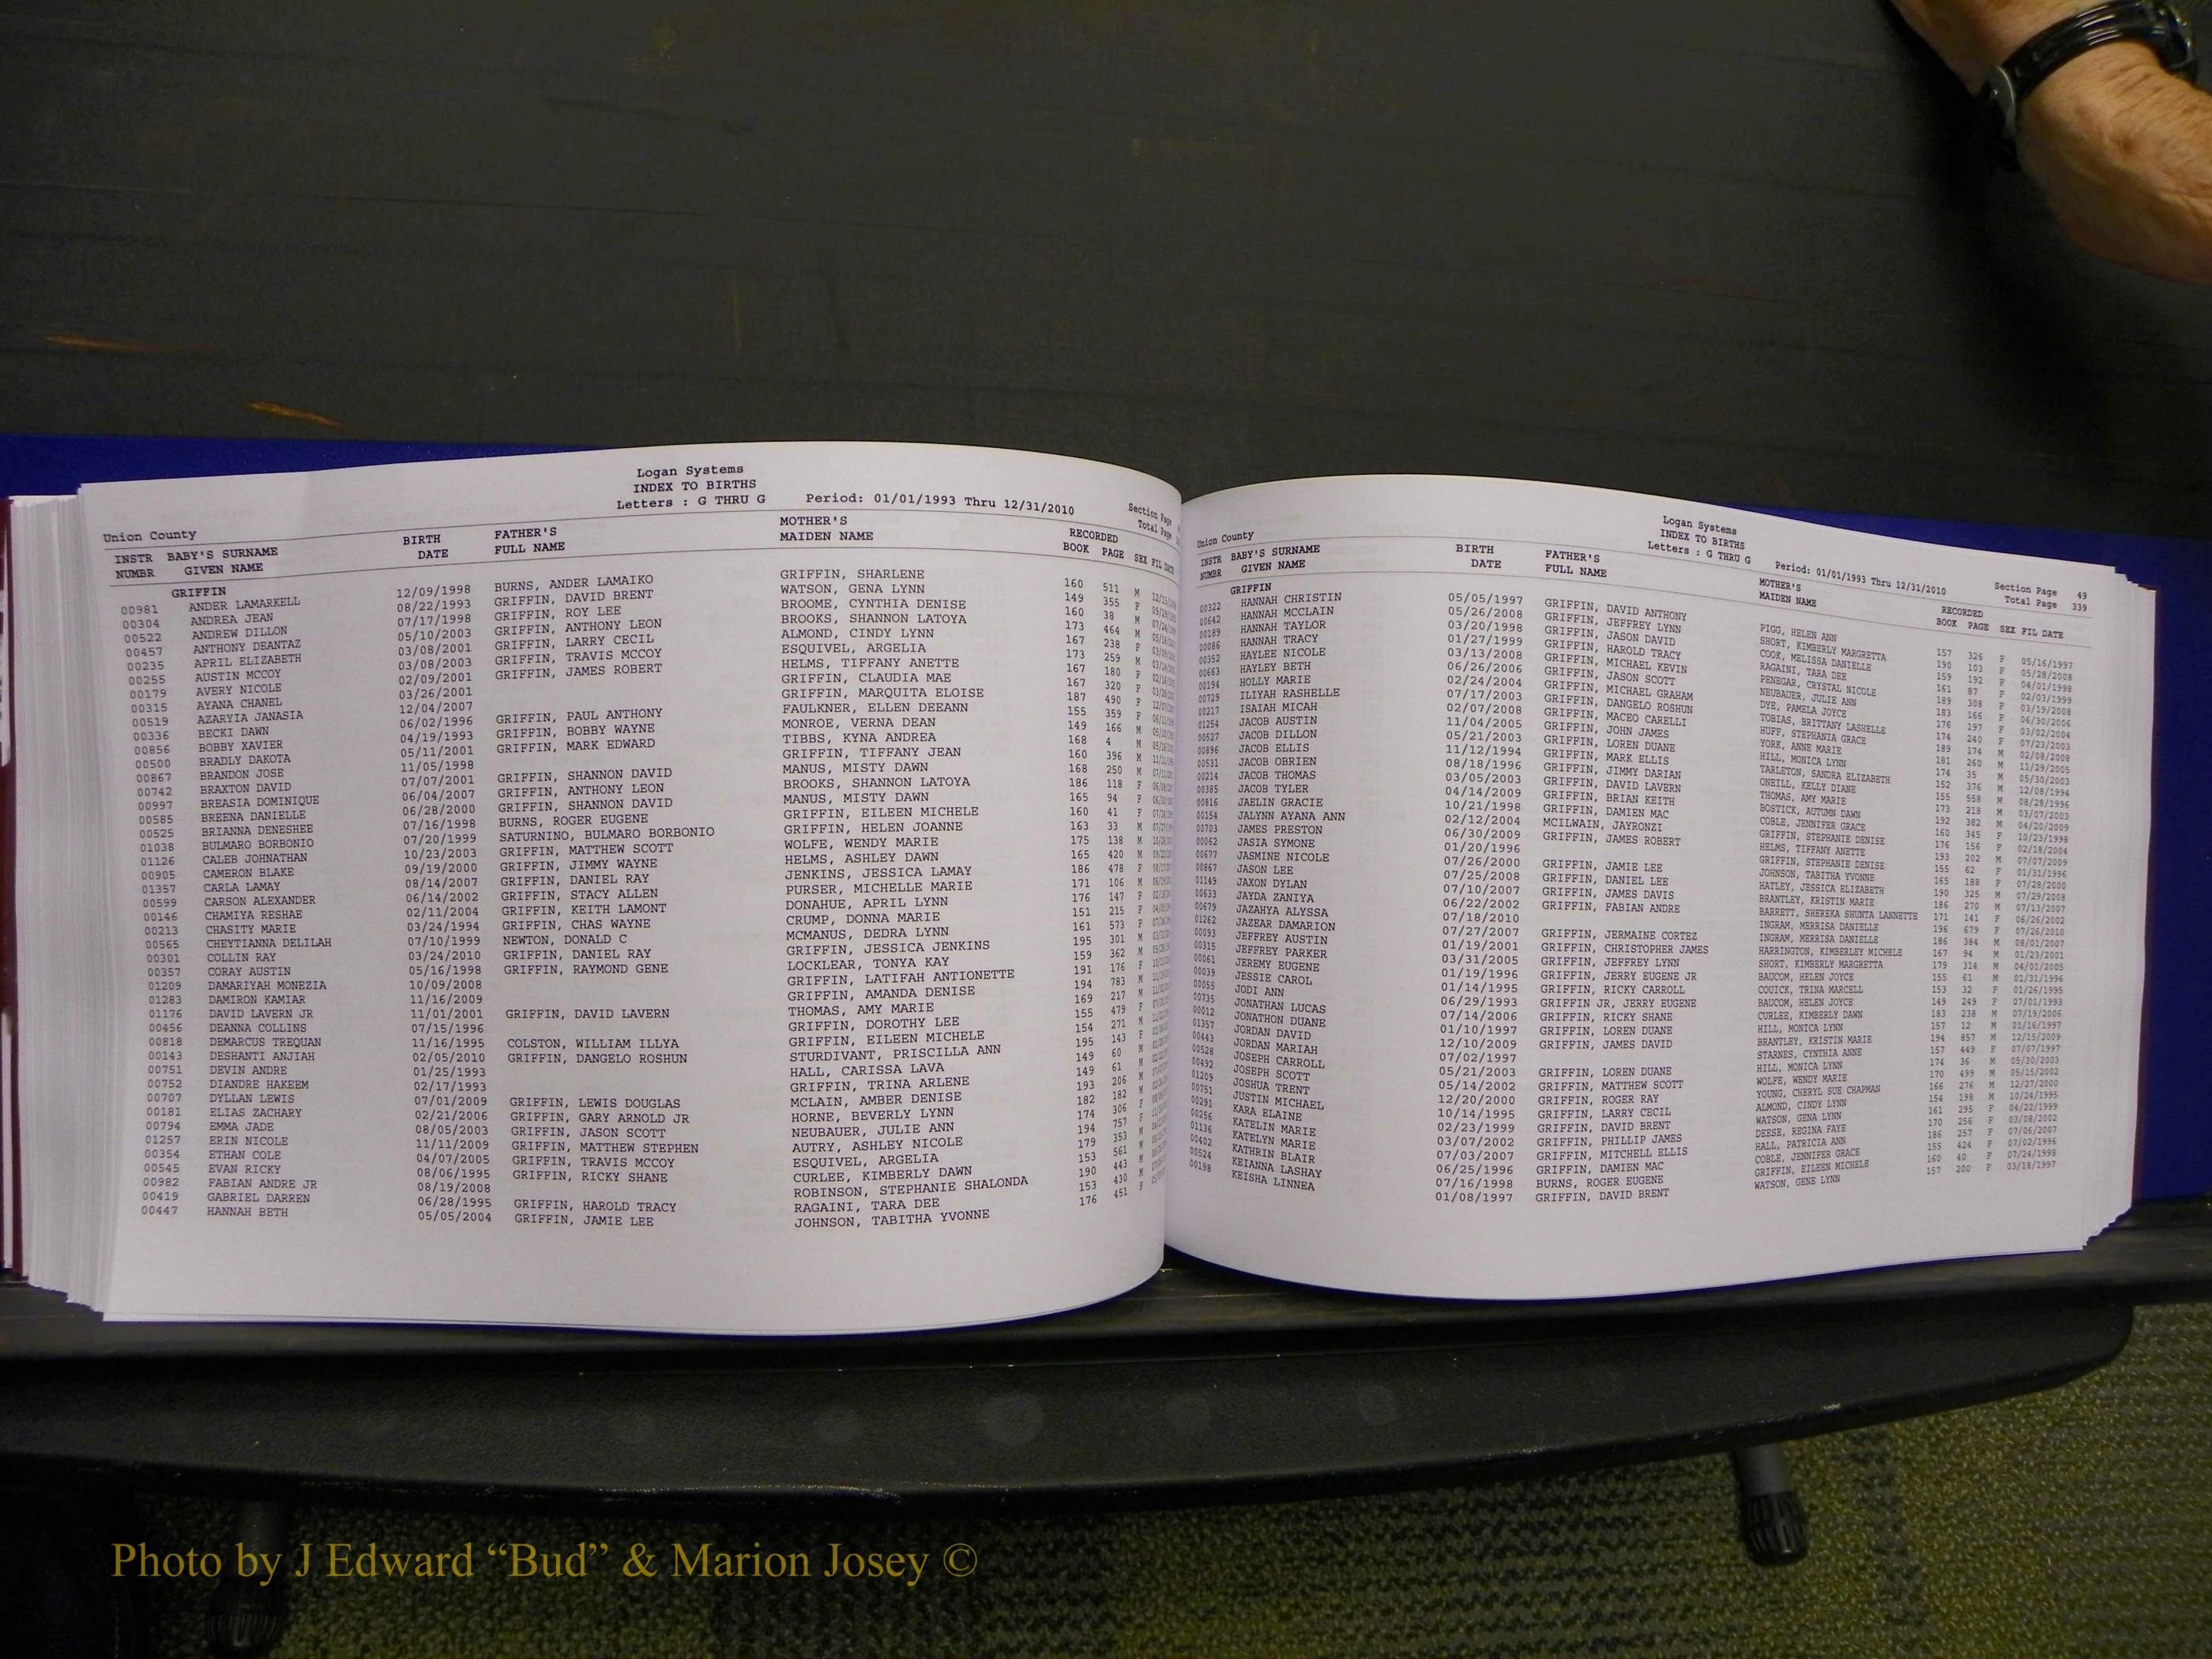 Logan Systems
INDEX TO BIRTHS
Letters : G THRU G Period: 01/01/1993 Thru 12/31/2010
Section Page
Total Page
Union County
INSTR BABY'S SURNAME BIRTH FATHER'S MOTHER'S RECORDED
NUMBR GIVEN NAME DATE FULL NAME MAIDEN NAME BOOK PAGE SEX FIL DATE
GRIFFIN
00981 ANDER LAMARKELL 12/09/1998 BURNS, ANDER LAMAIKO GRIFFIN, SHARLENE 160 511 M
00304 ANDREA JEAN 08/22/1993 GRIFFIN, DAVID BRENT WATSON, GENA LYNN 149 355 F
00522 ANDREW DILLON 07/17/1998 GRIFFIN, ROY LEE BROOME, CYNTHIA DENISE 160 38 M
00457 ANTHONY DEANTAZ 05/10/2003 GRIFFIN, ANTHONY LEON BROOKS, SHANNON LATOYA 173 464 M
00235 APRIL ELIZABETH 03/08/2001 GRIFFIN, LARRY CECIL ALMOND, CINDY LYNN 167 238 F
00255 AUSTIN MCCOY 03/08/2003 GRIFFIN, TRAVIS MCCOY ESQUIVEL, ARGELIA 173 259 M
00179 AVERY NICOLE 02/09/2001 GRIFFIN, JAMES ROBERT HELMS, TIFFANY ANETTE 167 180 F
00315 AYANA CHANEL 03/26/2001 GRIFFIN, CLAUDIA MAE 167 320 F
00519 AZARYIA JANASIA 12/04/2007 GRIFFIN, MARQUITA ELOISE 187 490 F
00336 BECKI DAWN 06/02/1996 GRIFFIN, PAUL ANTHONY FAULKNER, ELLEN DEEANN 155 359 F
00856 BOBBY XAVIER 04/19/1993 GRIFFIN, BOBBY WAYNE MONROE, VERNA DEAN 149 166 M
00500 BRADLY DAKOTA 05/11/2001 GRIFFIN, MARK EDWARD TIBBS, KYNA ANDREA 168 4 M
00867 BRANDON JOSE 11/05/1998 GRIFFIN, TIFFANY JEAN 160 396 M
00742 BRAXTON DAVID 07/07/2001 GRIFFIN, SHANNON DAVID MANUS, MISTY DAWN 168 250 M
00997 BREASIA DOMINIQUE 06/04/2007 GRIFFIN, ANTHONY LEON BROOKS, SHANNON LATOYA 186 118 F
00585 BREENA DANIELLE 06/28/2000 GRIFFIN, SHANNON DAVID MANUS, MISTY DAWN 165 94 F
00525 BRIANNA DENESHEE 07/16/1998 BURNS, ROGER EUGENE GRIFFIN, EILEEN MICHELE 160 41 F
01038 BULMARO BORBONIO 07/20/1999 SATURNINO, BULMARO BORBONIO GRIFFIN, HELEN JOANNE 163 33 M
01126 CALEB JOHNATHAN 10/23/2003 GRIFFIN, MATTHEW SCOTT WOLFE, WENDY MARIE 175 138 M
00905 CAMERON BLAKE 09/19/2000 GRIFFIN, JIMMY WAYNE HELMS, ASHLEY DAWN 165 420 M
01357 CARLA LAMAY 08/14/2007 GRIFFIN, DANIEL RAY JENKINS, JESSICA LAMAY 186 478 F
00599 CARSON ALEXANDER 06/14/2002 GRIFFIN, STACY ALLEN PURSER, MICHELLE MARIE 171 106 M
00146 CHAMIYA RESHAE 02/11/2004 GRIFFIN, KEITH LAMONT DONAHUE, APRIL LYNN 176 147 F
00213 CHASITY MARIE 03/24/1994 GRIFFIN, CHAS WAYNE CRUMP, DONNA MARIE 151 215 F
00565 CHEYTIANNA DELILAH 07/10/1999 NEWTON, DONALD C MCMANUS, DEDRA LYNN 161 573 F
00301 COLLIN RAY 03/24/2010 GRIFFIN, DANIEL RAY GRIFFIN, JESSICA JENKINS 195 301 M
00357 CORAY AUSTIN 05/16/1998 GRIFFIN, RAYMOND GENE LOCKLEAR, TONYA KAY 159 362 M
01209 DAMARIYAH MONEZIA 10/09/2008 GRIFFIN, LATIFAH ANTIONETTE 191 176 F
01283 DAMIRON KAMIAR 11/16/2009 GRIFFIN, AMANDA DENISE 194 783 M
01176 DAVID LAVERN JR 11/01/2001 GRIFFIN, DAVID LAVERN THOMAS, AMY MARIE 169 217 M
00456 DEANNA COLLINS 07/15/1996 GRIFFIN, DOROTHY LEE 155 479 F
00818 DEMARCUS TREQUAN 11/16/1995 COLSTON, WILLIAM ILLYA GRIFFIN, EILEEN MICHELE 154 271 M
00143 DESHANTI ANJIAH 02/05/2010 GRIFFIN, DANGELO ROSHUN STURDIVANT, PRISCILLA ANN 195 143 F
00751 DEVIN ANDRE 01/25/1993 HALL, CARISSA LAVA 149 60 M
00752 DIANDRE HAKEEM 02/17/1993 GRIFFIN, TRINA ARLENE 149 61 M
00707 DYLLAN LEWIS 07/01/2009 GRIFFIN, LEWIS DOUGLAS MCLAIN, AMBER DENISE 193 206 M
00181 ELIAS ZACHARY 02/21/2006 GRIFFIN, GARY ARNOLD JR HORNE, BEVERLY LYNN 182 182 M
00794 EMMA JADE 08/05/2003 GRIFFIN, JASON SCOTT NEUBAUER, JULIE ANN 174 306 F
01257 ERIN NICOLE 11/11/2009 GRIFFIN, MATTHEW STEPHEN AUTRY, ASHLEY NICOLE 194 757 F
00354 ETHAN COLE 04/07/2005 GRIFFIN, TRAVIS MCCOY ESQUIVEL, ARGELIA 179 353 M
00545 EVAN RICKY 08/06/1995 GRIFFIN, RICKY SHANE CURLEE, KIMBERLY DAWN 153 561 M
00982 FABIAN ANDRE JR 08/19/2008 ROBINSON, STEPHANIE SHALONDA 190 443 M
00419 GABRIEL DARREN 06/28/1995 GRIFFIN, HAROLD TRACY RAGAINI, TARA DEE 153 430 M
00447 HANNAH BETH 05/05/2004 GRIFFIN, JAMIE LEE JOHNSON, TABITHA YVONNE 176 451 F
Logan Systems
INDEX TO BIRTHS
Letters : G THRU G Period: 01/01/1993 Thru 12/31/2010
Section Page 49
Total Page 339
Union County
INSTR BABY'S SURNAME BIRTH FATHER'S MOTHER'S RECORDED
NUMBR GIVEN NAME DATE FULL NAME MAIDEN NAME BOOK PAGE SEX FIL DATE
GRIFFIN
00322 HANNAH CHRISTIN 05/05/1997 GRIFFIN, DAVID ANTHONY PIGG, HELEN ANN 157 326 F 05/16/1997
00642 HANNAH MCCLAIN 05/26/2008 GRIFFIN, JEFFREY LYNN SHORT, KIMBERLY MARGRETTA 190 103 F 05/28/2008
00189 HANNAH TAYLOR 03/20/1998 GRIFFIN, JASON DAVID COOK, MELISSA DANIELLE 159 192 F 04/01/1998
00086 HANNAH TRACY 01/27/1999 GRIFFIN, HAROLD TRACY RAGAINI, TARA DEE 161 87 F 02/03/1999
00352 HAYLEE NICOLE 03/13/2008 GRIFFIN, MICHAEL KEVIN PENEGAR, CRYSTAL NICOLE 189 308 F 03/19/2008
00663 HAYLEY BETH 06/26/2006 GRIFFIN, JASON SCOTT NEUBAUER, JULIE ANN 183 166 F 06/30/2006
00194 HOLLY MARIE 02/24/2004 GRIFFIN, MICHAEL GRAHAM DYE, PAMELA JOYCE 176 197 F 03/02/2004
00729 ILIYAH RASHELLE 07/17/2003 GRIFFIN, DANGELO ROSHUN TOBIAS, BRITTANY LASHELLE 174 240 F 07/23/2003
00217 ISAIAH MICAH 02/07/2008 GRIFFIN, MACEO CARELLI HUFF, STEPHANIA GRACE 189 174 M 02/08/2008
01254 JACOB AUSTIN 11/04/2005 GRIFFIN, JOHN JAMES YORK, ANNE MARIE 181 260 M 11/29/2005
00527 JACOB DILLON 05/21/2003 GRIFFIN, LOREN DUANE HILL, MONICA LYNN 174 35 M 05/30/2003
00896 JACOB ELLIS 11/12/1994 GRIFFIN, MARK ELLIS TARLETON, SANDRA ELIZABETH 152 376 M 12/08/1994
00531 JACOB OBRIEN 08/18/1996 GRIFFIN, JIMMY DARIAN ONEILL, KELLY DIANE 155 558 M 08/28/1996
00214 JACOB THOMAS 03/05/2003 GRIFFIN, DAVID LAVERN THOMAS, AMY MARIE 173 218 M 03/07/2003
00385 JACOB TYLER 04/14/2009 GRIFFIN, BRIAN KEITH BOSTICK, AUTUMN DAWN 192 382 M 04/20/2009
00816 JAELIN GRACIE 10/21/1998 GRIFFIN, DAMIEN MAC COBLE, JENNIFER GRACE 160 345 F 10/23/1998
00154 JALYNN AYANA ANN 02/12/2004 MCILWAIN, JAYRONZI GRIFFIN, STEPHANIE DENISE 176 156 F 02/18/2004
00703 JAMES PRESTON 06/30/2009 GRIFFIN, JAMES ROBERT HELMS, TIFFANY ANETTE 193 202 M 07/07/2009
00062 JASIA SYMONE 01/20/1996 GRIFFIN, STEPHANIE DENISE 155 62 F 01/31/1996
00677 JASMINE NICOLE 07/26/2000 GRIFFIN, JAMIE LEE JOHNSON, TABITHA YVONNE 165 188 F 07/28/2000
00867 JASON LEE 07/25/2008 GRIFFIN, DANIEL LEE HATLEY, JESSICA ELIZABETH 190 325 M 07/29/2008
01149 JAXON DYLAN 07/10/2007 GRIFFIN, JAMES DAVIS BRANTLEY, KRISTIN MARIE 186 270 M 07/13/2007
00633 JAYDA ZANIYA 06/22/2002 GRIFFIN, FABIAN ANDRE BARRETT, SHEREKA SHUNTA LANNETTE 171 141 F 06/26/2002
00679 JAZAHYA ALYSSA 07/18/2010 INGRAM, MERRISA DANIELLE 196 679 F 07/26/2010
01262 JAZEAR DAMARION 07/27/2007 GRIFFIN, JERMAINE CORTEZ INGRAM, MERRISA DANIELLE 186 384 M 08/01/2007
00093 JEFFREY AUSTIN 01/19/2001 GRIFFIN, CHRISTOPHER JAMES HARRINGTON, KIMBERLEY MICHELE 167 94 M 01/23/2001
00315 JEFFREY PARKER 03/31/2005 GRIFFIN, JEFFREY LYNN SHORT, KIMBERLY MARGRETTA 179 314 M 04/01/2005
00061 JEREMY EUGENE 01/19/1996 GRIFFIN, JERRY EUGENE JR BAUCOM, HELEN JOYCE 155 61 M 01/31/1996
00039 JESSIE CAROL 01/14/1995 GRIFFIN, RICKY CARROLL COUICK, TRINA MARCELL 153 32 F 01/26/1995
00055 JODI ANN 06/29/1993 GRIFFIN JR, JERRY EUGENE BAUCOM, HELEN JOYCE 149 249 F 07/01/1993
00735 JONATHAN LUCAS 07/14/2006 GRIFFIN, RICKY SHANE CURLEE, KIMBERLY DAWN 183 238 M 07/19/2006
00012 JONATHON DUANE 01/10/1997 GRIFFIN, LOREN DUANE HILL, MONICA LYNN 157 12 M 01/16/1997
01357 JORDAN DAVID 12/10/2009 GRIFFIN, JAMES DAVID BRANTLEY, KRISTIN MARIE 194 857 M 12/15/2009
00443 JORDAN MARIAH 07/02/1997 STARNES, CYNTHIA ANNE 157 449 F 07/07/1997
00528 JOSEPH CARROLL 05/21/2003 GRIFFIN, LOREN DUANE HILL, MONICA LYNN 174 36 M 05/30/2003
00492 JOSEPH SCOTT 05/14/2002 GRIFFIN, MATTHEW SCOTT WOLFE, WENDY MARIE 170 499 M 05/15/2002
01209 JOSHUA TRENT 12/20/2000 GRIFFIN, ROGER RAY YOUNG, CHERYL SUE CHAPMAN 166 276 M 12/27/2000
00751 JUSTIN MICHAEL 10/14/1995 GRIFFIN, LARRY CECIL ALMOND, CINDY LYNN 154 198 M 10/24/1995
00291 KARA ELAINE 02/23/1999 GRIFFIN, DAVID BRENT WATSON, GENA LYNN 161 295 F 04/22/1999
00256 KATELIN MARIE 03/07/2002 GRIFFIN, PHILLIP JAMES DEESE, REGINA FAYE 170 256 F 03/08/2002
01136 KATELYN MARIE 07/03/2007 GRIFFIN, MITCHELL ELLIS HALL, PATRICIA ANN 186 257 F 07/06/2007
00402 KATHRIN BLAIR 06/25/1996 GRIFFIN, DAMIEN MAC COBLE, JENNIFER GRACE 155 424 F 07/02/1996
00524 KEIANNA LASHAY 07/16/1998 BURNS, ROGER EUGENE GRIFFIN, EILEEN MICHELE 160 40 F 07/24/1998
00198 KEISHA LINNEA 01/08/1997 GRIFFIN, DAVID BRENT WATSON, GENE LYNN 157 200 F 03/18/1997
Photo by J Edward “Bud” & Marion Josey ©